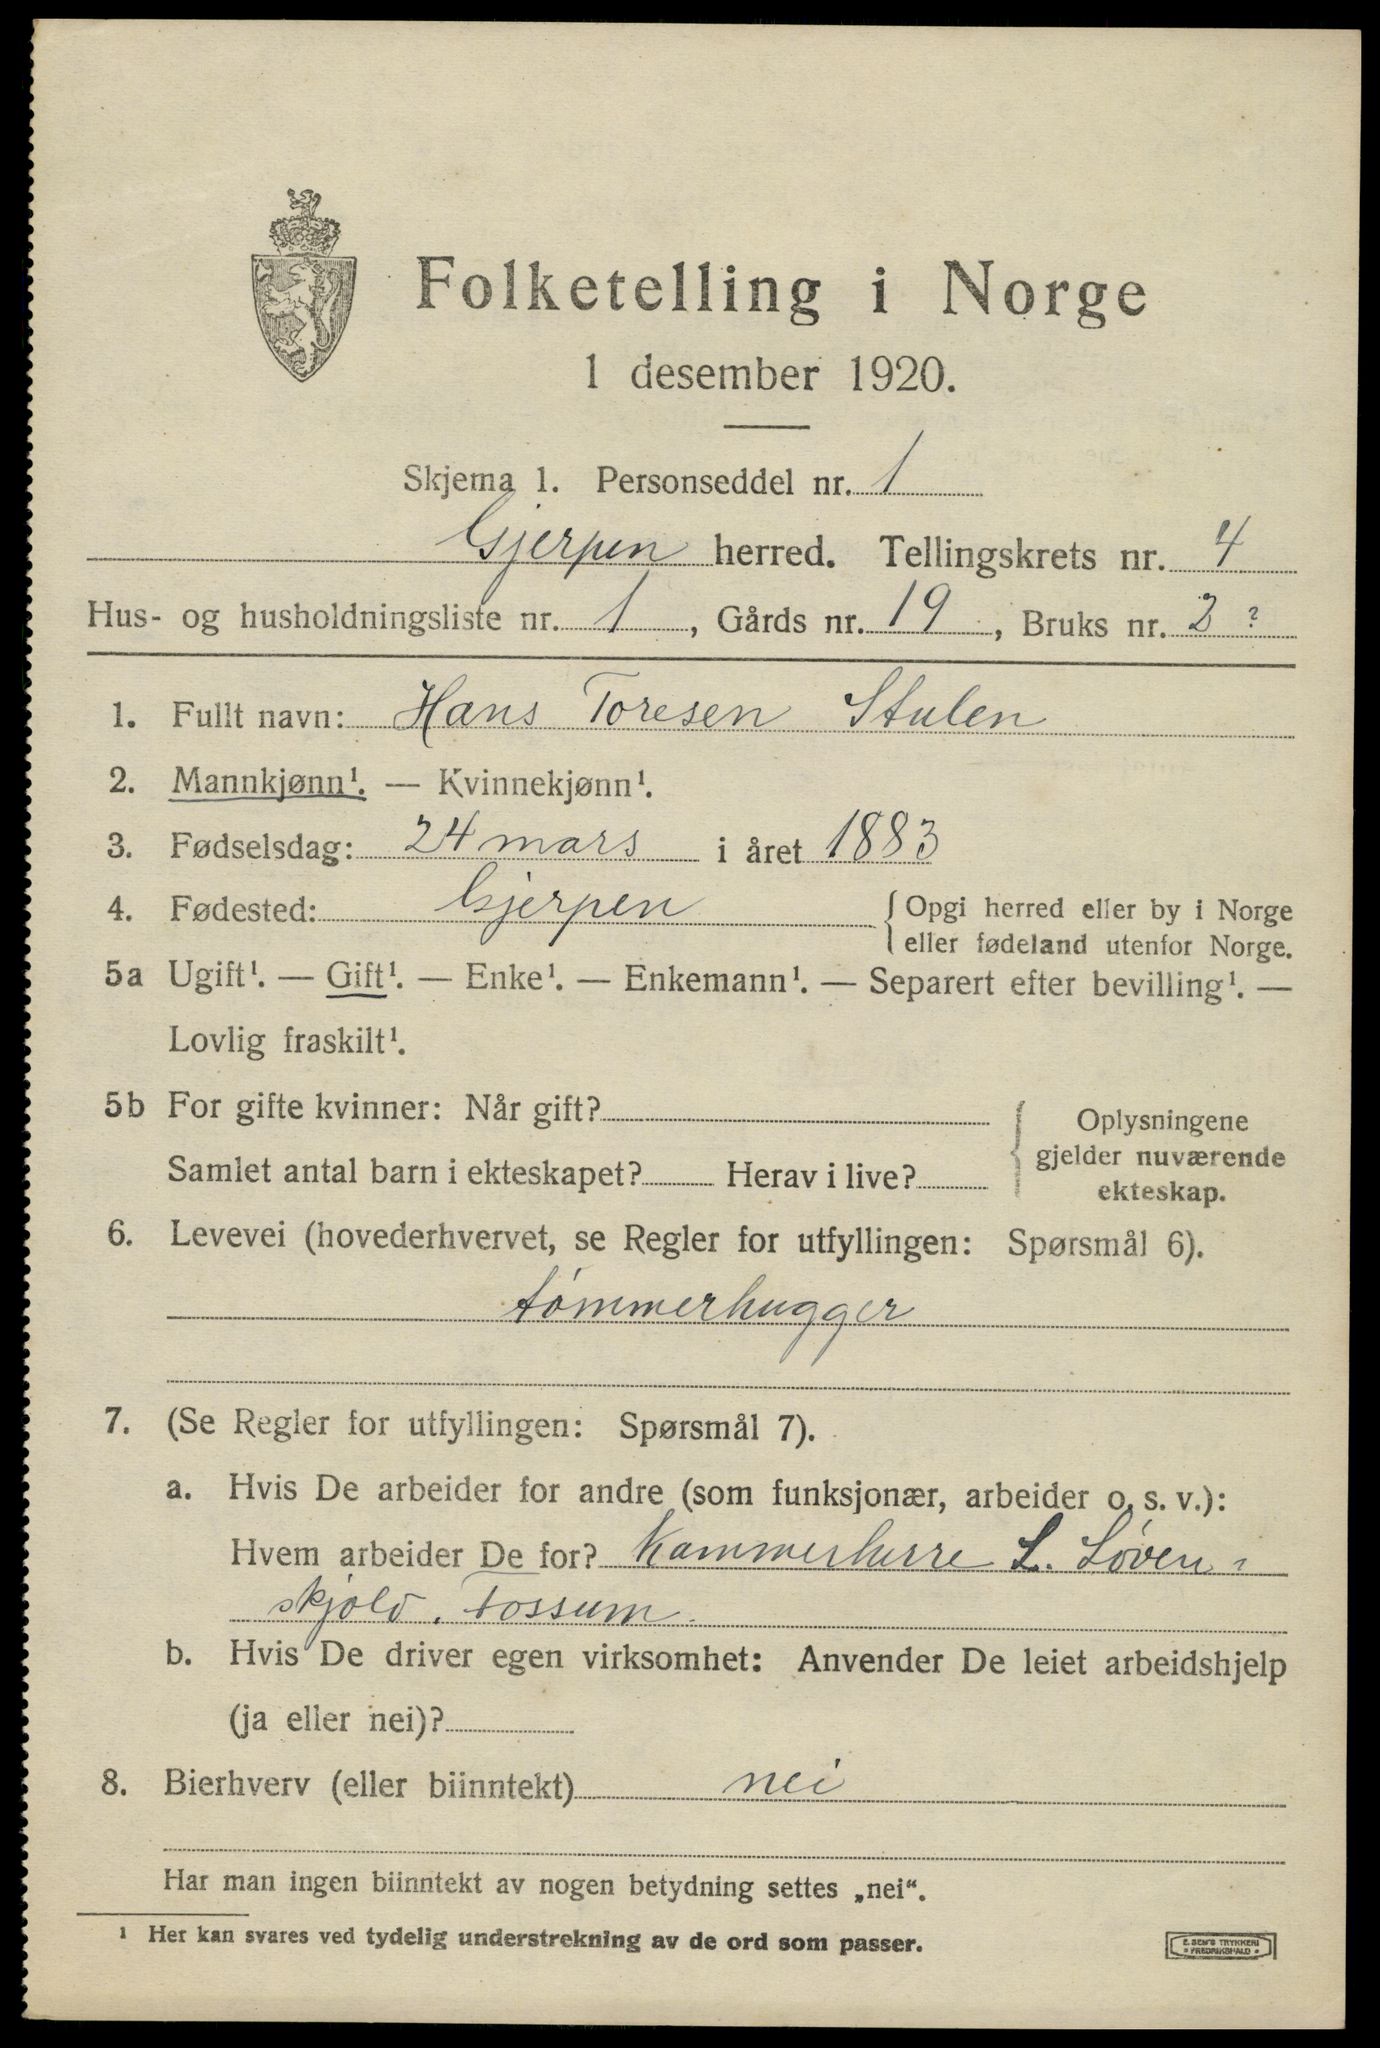 Folketelling i Norge
1 desember 1920.
Skjema 1. Personseddel nr. 1
Gjerpen herred. Tellingskrets nr. 4
Hus- og husholdningsliste nr. 1, Gårds nr. 19, Bruks nr. 2 ?
1. Fullt navn: Hans Toresen Stulen
2. Mannkjønn¹. — Kvinnekjønn¹.
3. Fødselsdag: 24 mars i året 1883
4. Fødested: Gjerpen { Opgi herred eller by i Norge
eller fødeland utenfor Norge.
5a Ugift¹. — Gift¹. — Enke¹. — Enkemann¹. — Separert efter bevilling¹. —
Lovlig fraskilt¹.
5b For gifte kvinner: Når gift?
Samlet antal barn i ekteskapet? Herav i live?
{ Oplysningene
gjelder nuværende
ekteskap.
6. Levevei (hovederhvervet, se Regler for utfyllingen: Spørsmål 6).
tømmerhugger
7. (Se Regler for utfyllingen: Spørsmål 7).
a. Hvis De arbeider for andre (som funksjonær, arbeider o. s. v.):
Hvem arbeider De for? Kammerherre L. Løven-
skjold. Fossum.
b. Hvis De driver egen virksomhet: Anvender De leiet arbeidshjelp
(ja eller nei)?
8. Bierhverv (eller biinntekt) nei
Har man ingen biinntekt av nogen betydning settes „nei“.
¹ Her kan svares ved tydelig understrekning av de ord som passer.
E. SEM'S TRYKKERI
FREDRIKSHALD